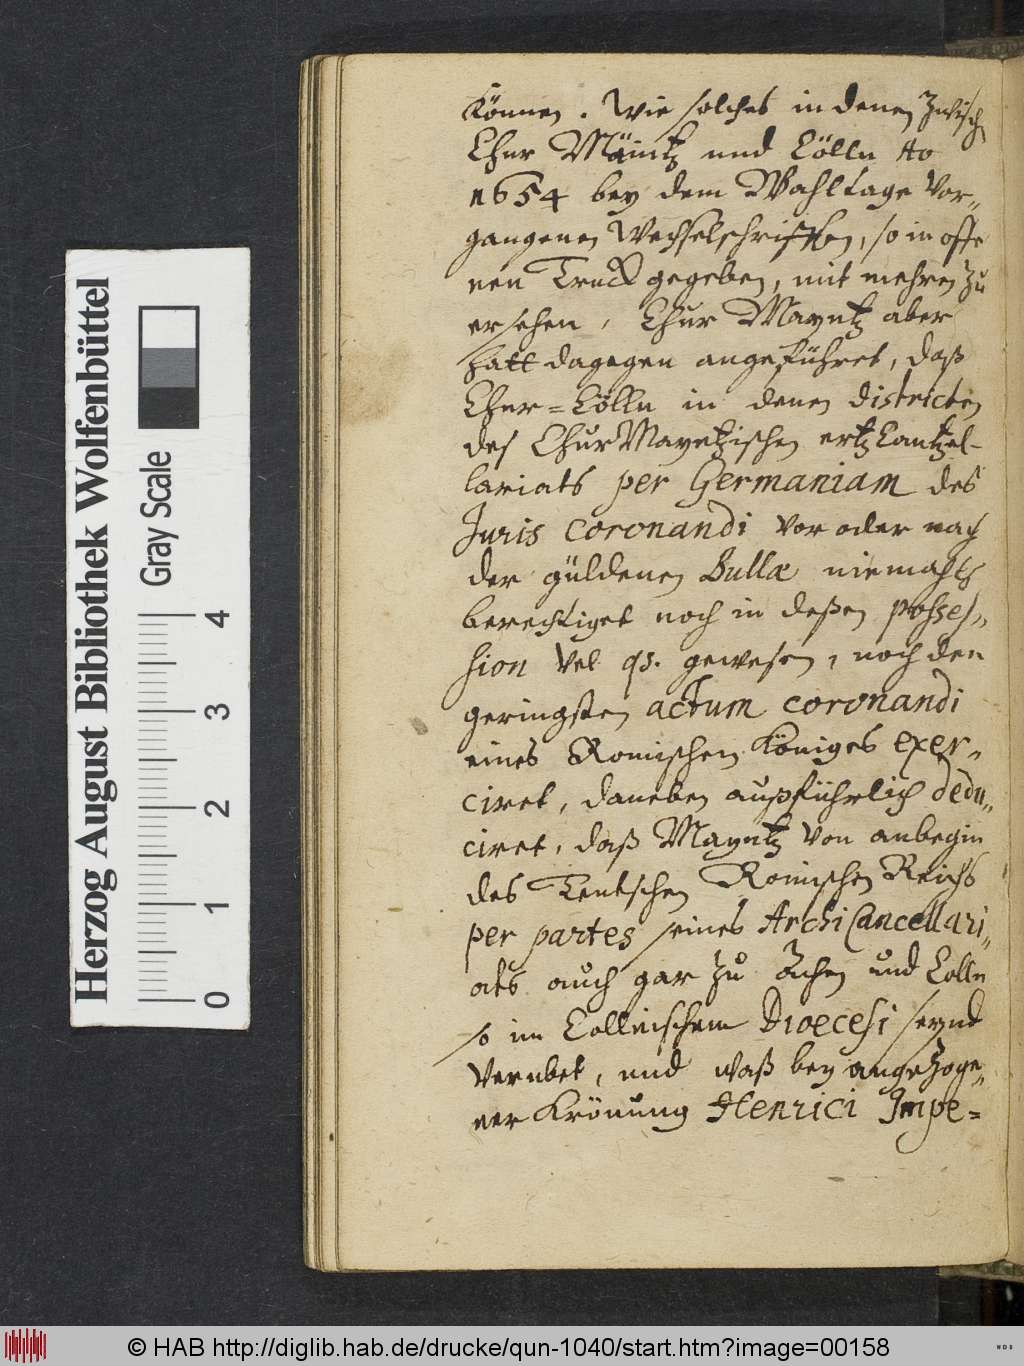 können. Wie solches in denen zwisch
Chur Mäintz und Cölln Ao
1654 bey dem Wahltage Vor-
gangenen Wechselschrifften, so in offe
nen Truck gegeben, mit mehren zu
ersehen, Chur Mayntz aber
hatt dagegen angeführet, daß
Chur=Cölln in denen districten
des ChurMayntzischen ertzCantzel-
lariats per Germaniam des
Juris coronandi vor oder nach
der güldenen Bullæ niemahls
berechtiget noch in deßen posses-
sion vel qs. gewesen, noch den
geringsten actum coronandi
eines Romischen Königes exer-
ciret, daneben außführlich dedu-
ciret, daß Mayntz von anbegin
des Teutschen Romischen Reichs
per partes seines ArchiCancellari-
ats auch gar zu Achen und Colln
so im Collnischem Dioecesi seynd
verubet, und waß bey angezoge-
ner Krönung Henrici Impe=
Herzog August Bibliothek Wolfenbüttel
Gray Scale
0 1 2 3 4
© HAB http://diglib.hab.de/drucke/qun-1040/start.htm?image=00158